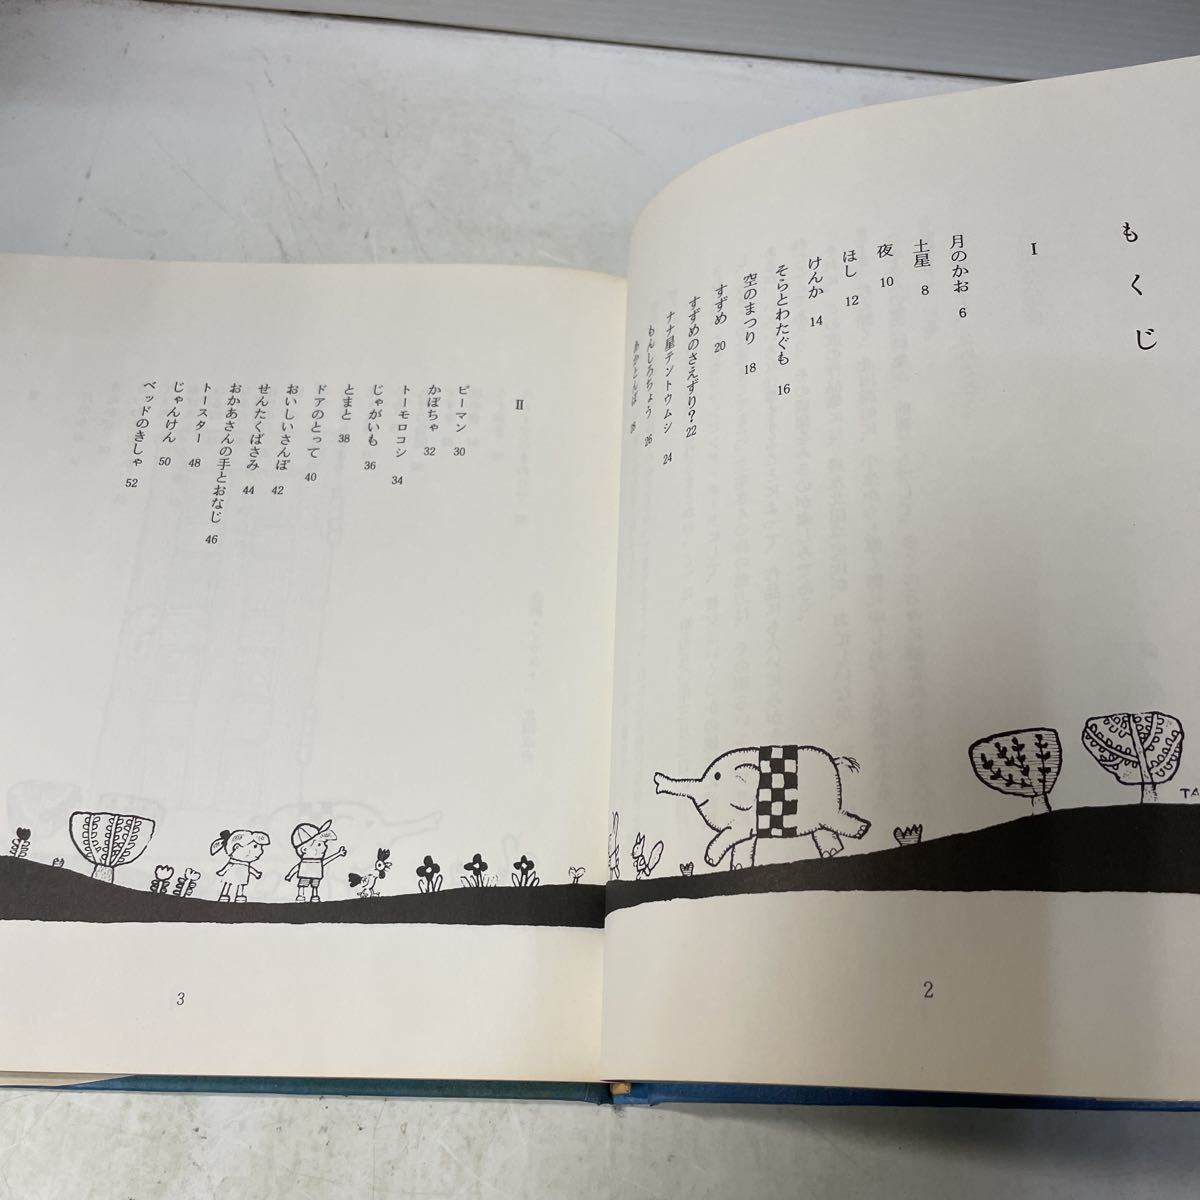 もくじ
I
月のかお 6
土星 8
夜 10
ほし 12
けんか 14
そらとわたぐも 16
空のまつり 18
すずめ 20
すずめのさえずり? 22
ナナ星テントウムシ 24
もんしろちょう 26
あかとんぼ 28
TA
2
II
ピーマン 30
かぼちゃ 32
トーモロコシ 34
じゃがいも 36
とまと 38
ドアのとって 40
おいしいさんぽ 42
せんたくばさみ 44
おかあさんの手とおなじ 46
トースター 48
じゃんけん 50
ベッドのきしゃ 52
3